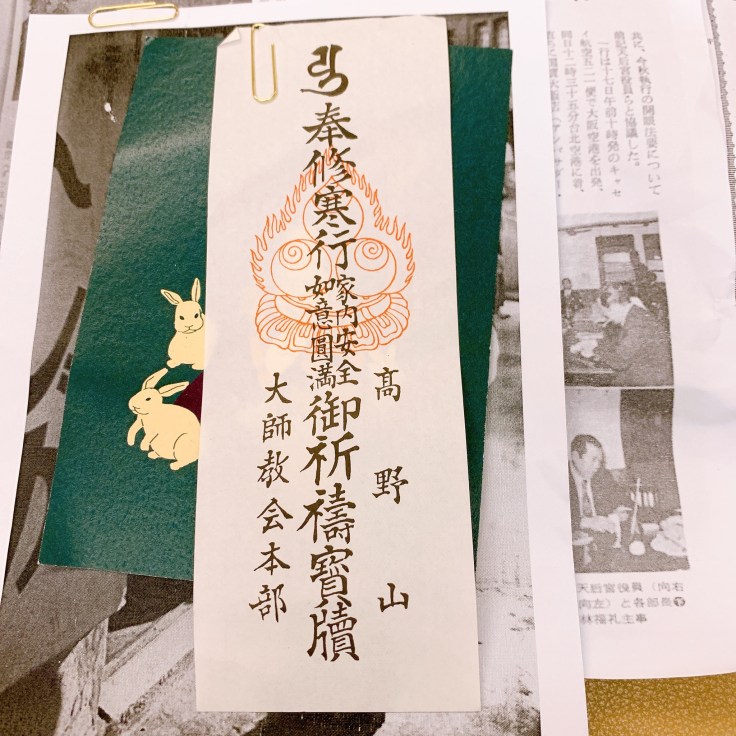 髙野山
奉修寒行家内安全如意圓満御祈禱寶牘
大師教会本部
共に、今秋執行の開眼法要について
前記天后宮役員らと協議した。
一行は十七日午前十時発のキャセ
イ航空五二一便で大阪空港を出発、
同日十二時三十五分台北空港に着、
天后宮役員(向右
向左)と各部長下
林福礼主事